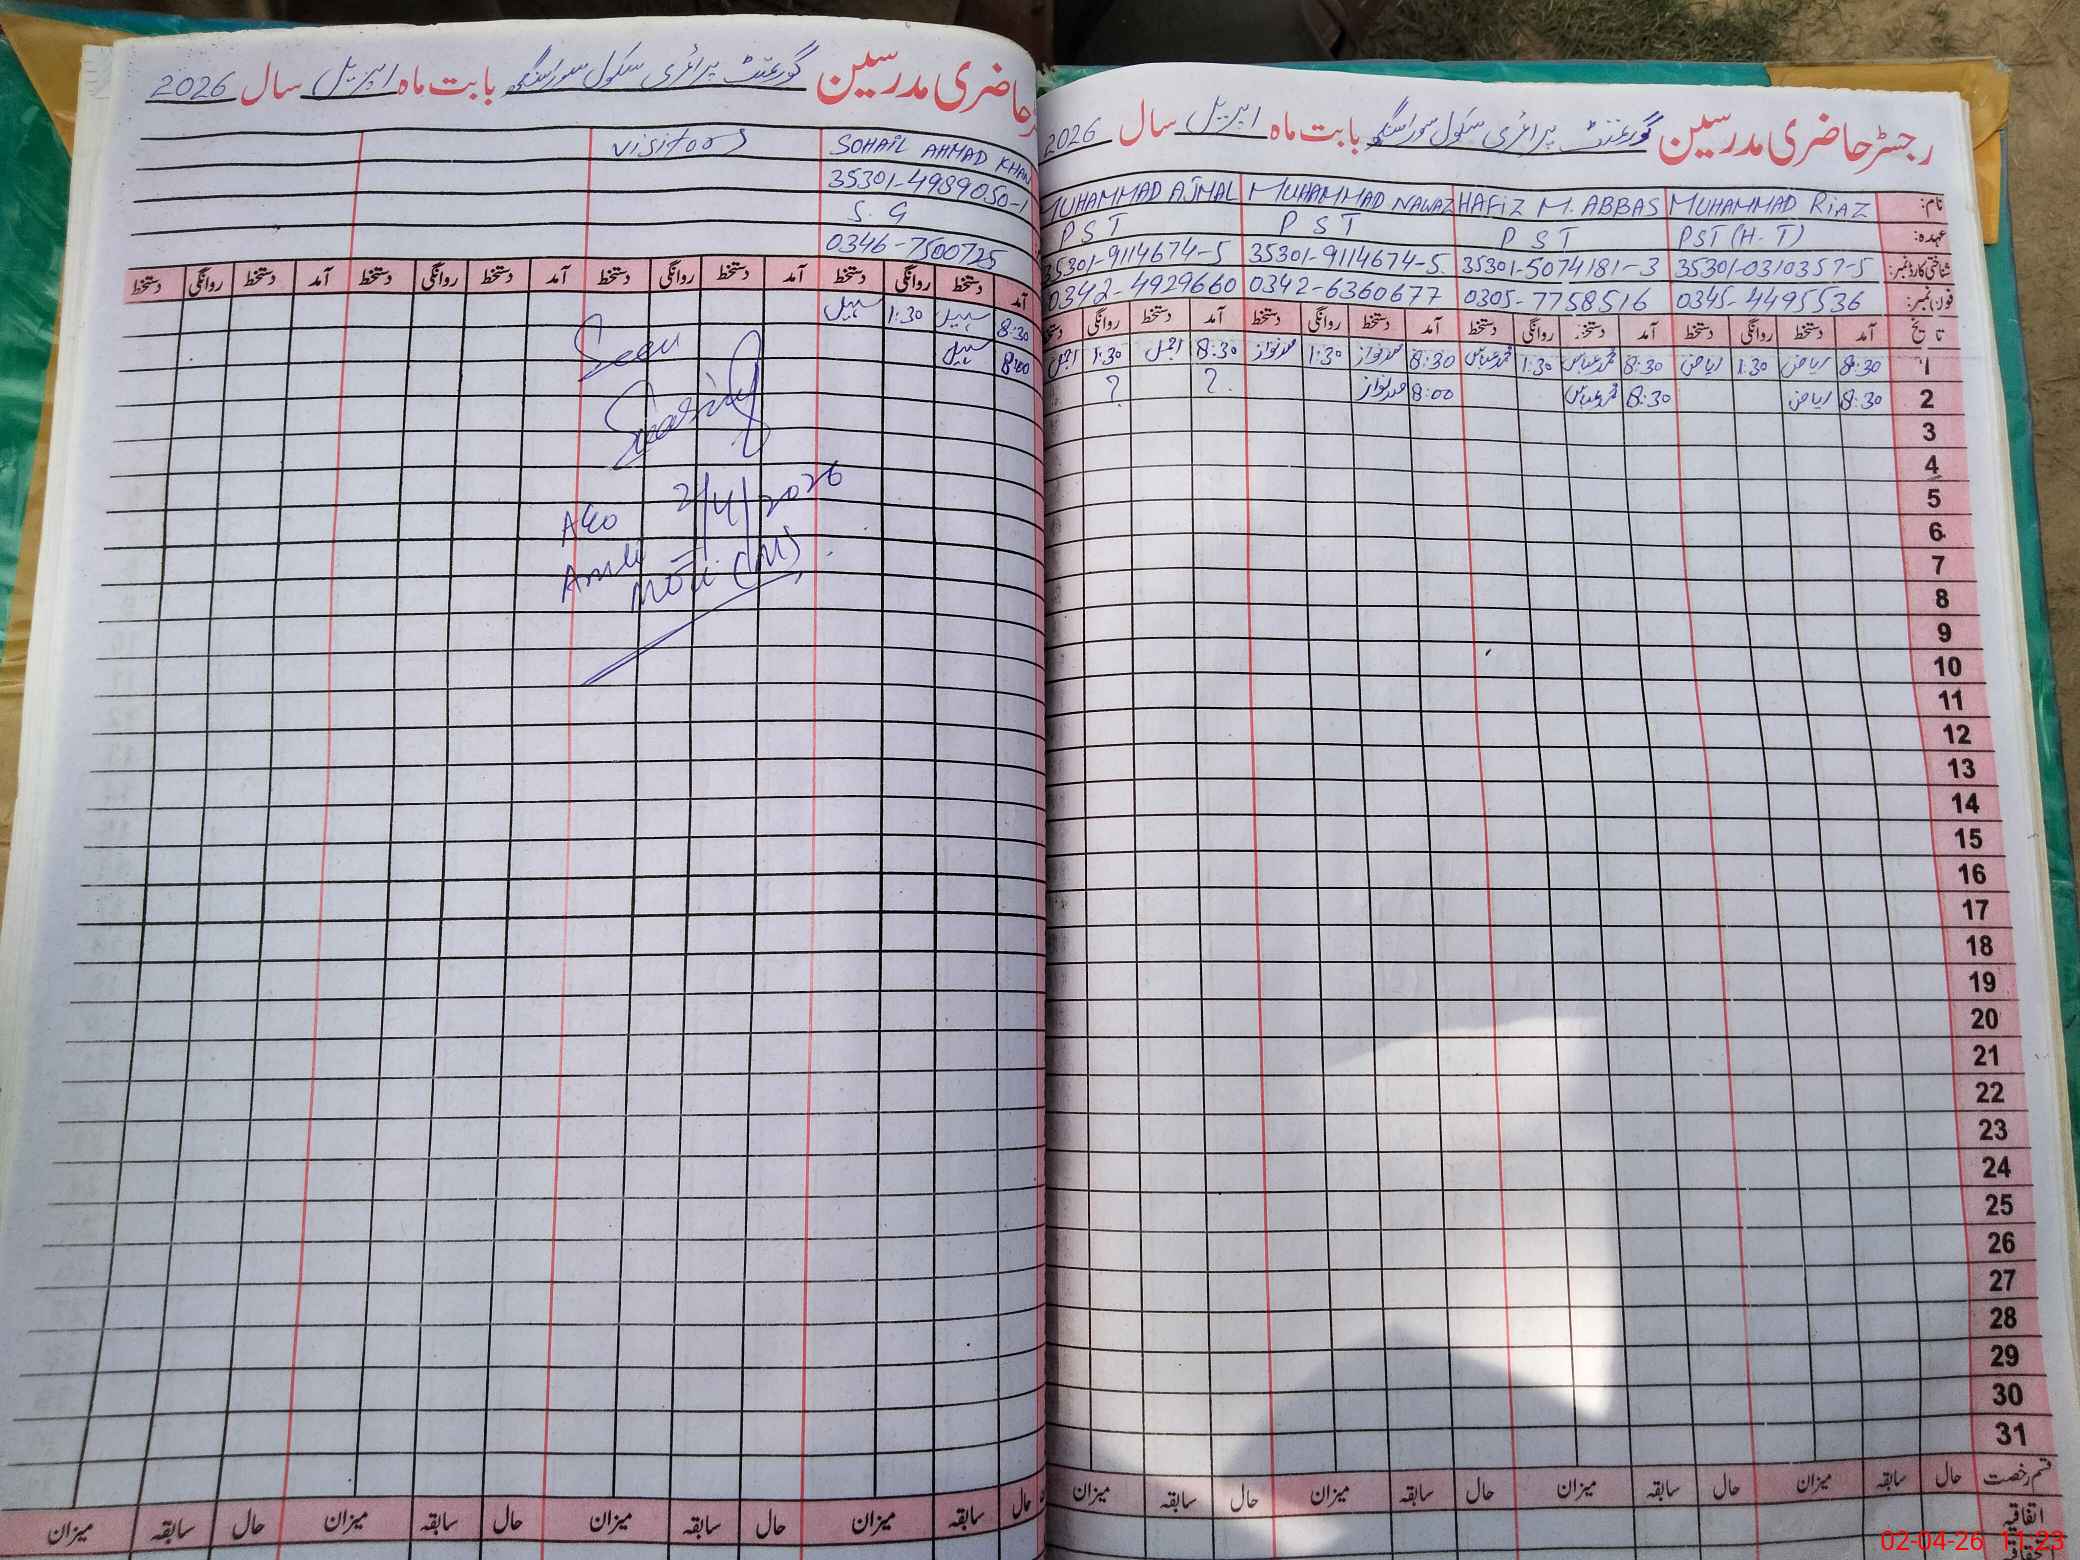 رجسٹر حاضری مدرسین گورنمنٹ پرائمری سکول سوراسنگھ بابت ماہ اپریل سال 2026
نام: MUHAMMAD RIAZ HAFIZ M. ABBAS MUHAMMAD NAWAZ MUHAMMAD AJMAL
عہدہ: PST (H.T) P S T P S T P S T
شناختی کارڈ نمبر: 35301-0310357-5 35301-5074181-3 35301-9114674-5 35301-9114674-5
فون نمبر: 0345-4495536 0305-7758516 0342-6360677 0342-4929660
تاریخ آمد دستخط روانگی دستخط آمد دستخط روانگی دستخط آمد دستخط روانگی دستخط آمد دستخط روانگی دستخط
1 8:30 ریاض 1:30 ریاض 8:30 محمد عباس 1:30 محمد عباس 8:30 محمد نواز 1:30 محمد نواز 8:30 اجمل 1:30 اجمل
2 8:30 ریاض 8:30 محمد عباس 8:00 محمد نواز ? ?
3
4
5
6
7
8
9
10
11
12
13
14
15
16
17
18
19
20
21
22
23
24
25
26
27
28
29
30
31
قسم رخصت حال سابقہ میزان حال سابقہ میزان حال سابقہ میزان حال سابقہ میزان
اتفاقیہ
رجسٹر حاضری مدرسین گورنمنٹ پرائمری سکول سوراسنگھ بابت ماہ اپریل سال 2026
SOHAIL AHMAD KHAN visitoors
35301-4989050-1
S. G
0346-7500725
آمد دستخط روانگی دستخط آمد دستخط روانگی دستخط آمد دستخط روانگی دستخط آمد دستخط روانگی دستخط
8:30 سہیل 1:30 سہیل
8:00 سہیل
Seen
2/4/2026
AEO
حال سابقہ میزان حال سابقہ میزان حال سابقہ میزان حال سابقہ میزان
02-04-26 11:23